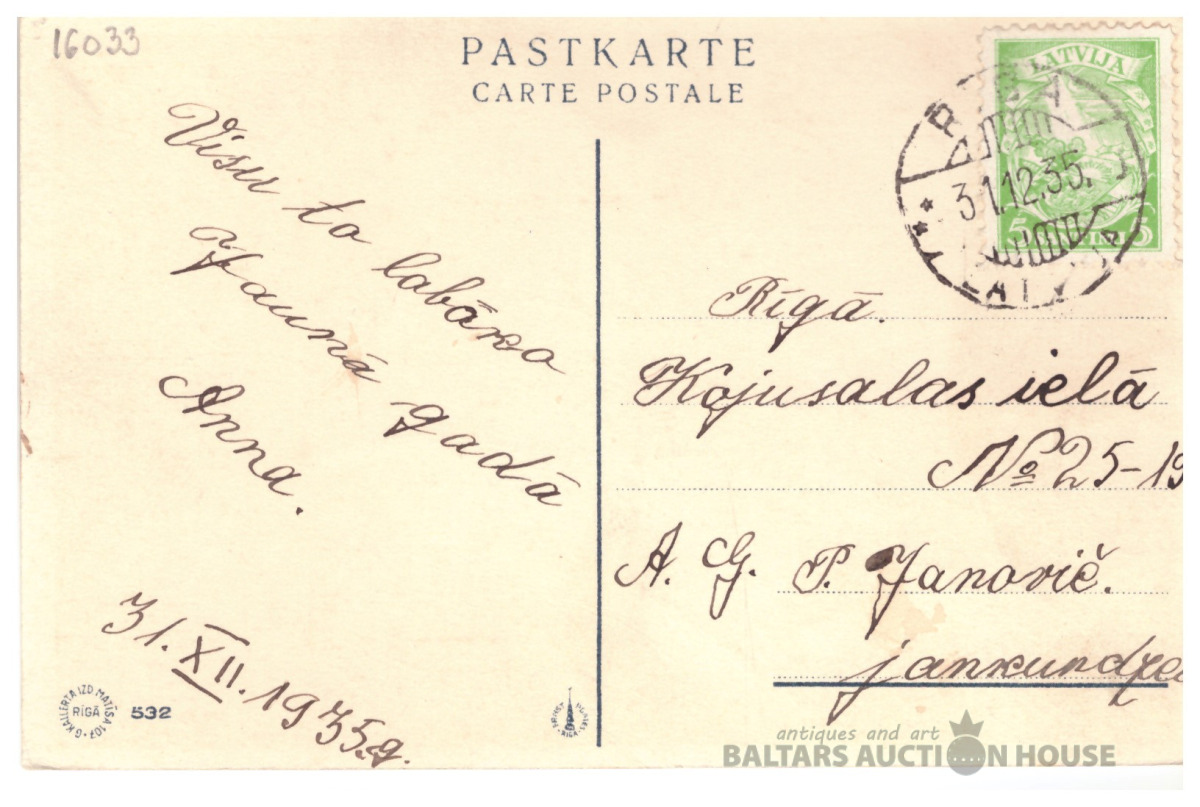 16033
PASTKARTE
CARTE POSTALE
LATVIJA
RIGA
31.12.35.
LATV
Visu to labāko
Jaunā gadā
Anna.
31. XII. 1935.g.
Rīgā.
Kojusalas ielā
№ 25-19
A. G. P. Janovič.
jaunkundzei
G. KALLERTA IZD. MATĪSA 107
RĪGĀ
532
antiques and art
BALTARS AUCTION HOUSE